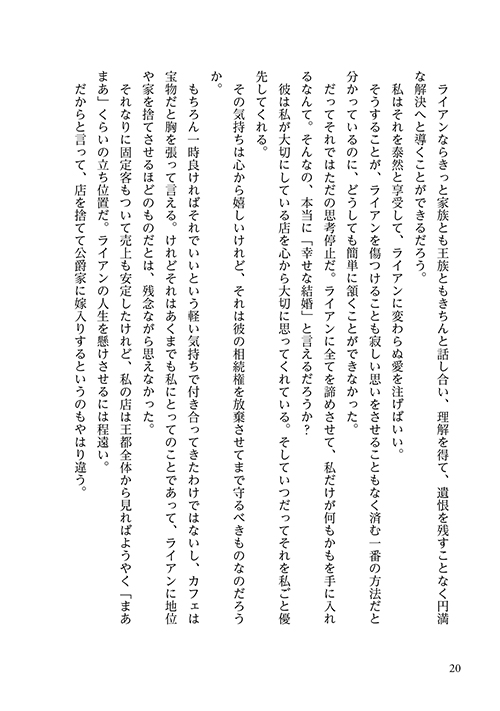 ライアンならきっと家族とも王族ともきちんと話し合い、理解を得て、遺恨を残すことなく円満
な解決へと導くことができるだろう。
私はそれを泰然と享受して、ライアンに変わらぬ愛を注げばいい。
そうすることが、ライアンを傷つけることも寂しい思いをさせることもなく済む一番の方法だと
分かっているのに、どうしても簡単に頷くことができなかった。
だってそれではただの思考停止だ。ライアンに全てを諦めさせて、私だけが何もかもを手に入れ
るなんて。そんなの、本当に「幸せな結婚」と言えるだろうか？
彼は私が大切にしている店を心から大切に思ってくれている。そしていつだってそれを私ごと優
先してくれる。
その気持ちは心から嬉しいけれど、それは彼の相続権を放棄させてまで守るべきものなのだろう
か。
もちろん一時良ければそれでいいという軽い気持ちで付き合ってきたわけではないし、カフェは
宝物だと胸を張って言える。けれどそれはあくまでも私にとってのことであって、ライアンに地位
や家を捨てさせるほどのものだとは、残念ながら思えなかった。
それなりに固定客もついて売上も安定したけれど、私の店は王都全体から見ればようやく「まあ
まあ」くらいの立ち位置だ。ライアンの人生を懸けさせるには程遠い。
だからと言って、店を捨てて公爵家に嫁入りするというのもやはり違う。
20